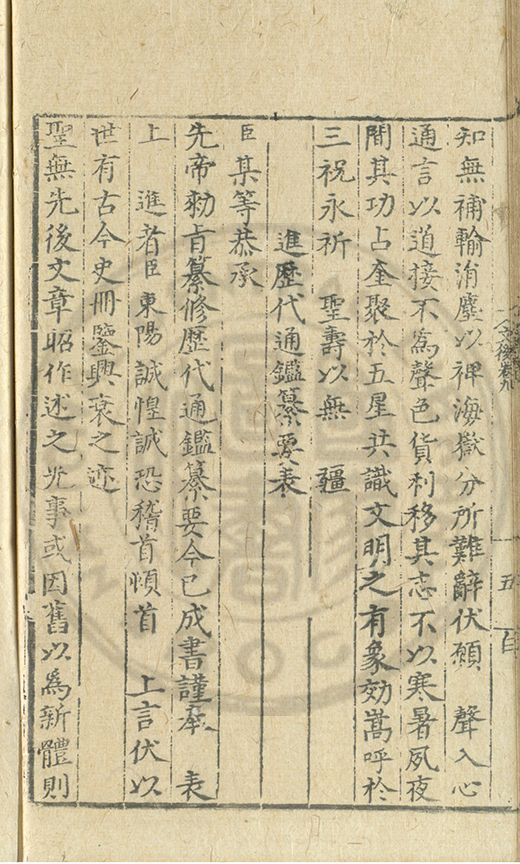 知無補輸涓塵以裨海嶽分所難辭伏願　聲入心
通言以道接不為聲色貨利移其志不以寒暑夙夜
間其功占奎聚於五星共識文明之有象効嵩呼於
三祝永祈　聖壽以無　疆
進歷代通鑑纂要表
臣某等恭承
先帝勑旨纂修歷代通鑑纂要今已成書謹奉　表
上　進者臣東陽誠惶誠恐稽首頓首　上言伏以
世有古今史冊鑒興衰之迹
聖無先後文章昭作述之光事或因舊以為新體則